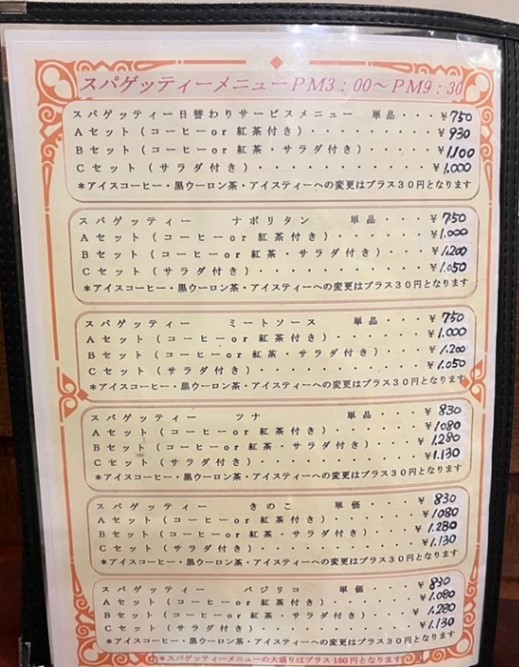 スパゲッティーメニューPM3：00～PM9：30
スパゲッティー日替わりサービスメニュー 単品・・・￥750
Aセット（コーヒーor 紅茶付き）・・・・・・・・￥930
Bセット（コーヒーor 紅茶・サラダ付き）・・・・￥1,100
Cセット（サラダ付き）・・・・・・・・・・・￥1,000
＊アイスコーヒー・黒ウーロン茶・アイスティーへの変更はプラス30円となります
スパゲッティー ナポリタン 単品・・・￥750
Aセット（コーヒーor 紅茶付き）・・・・・・・￥1,000
Bセット（コーヒーor 紅茶・サラダ付き）・・・￥1,200
Cセット（サラダ付き）・・・・・・・・・・・￥1,050
＊アイスコーヒー・黒ウーロン茶・アイスティーへの変更はプラス30円となります
スパゲッティー ミートソース 単品・・・￥750
Aセット（コーヒーor 紅茶付き）・・・・・・・￥1,000
Bセット（コーヒーor 紅茶・サラダ付き）・・・￥1,200
Cセット（サラダ付き）・・・・・・・・・・・￥1,050
＊アイスコーヒー・黒ウーロン茶・アイスティーへの変更はプラス30円となります
スパゲッティー ツナ 単品・・・￥830
Aセット（コーヒーor 紅茶付き）・・・・・・・￥1080
Bセット（コーヒーor 紅茶・サラダ付き）・・・￥1,280
Cセット（サラダ付き）・・・・・・・・・・・￥1,130
＊アイスコーヒー・黒ウーロン茶・アイスティーへの変更はプラス30円となります
スパゲッティー きのこ 単価・・・￥830
Aセット（コーヒーor 紅茶付き）・・・・・・・￥1080
Bセット（コーヒーor 紅茶・サラダ付き）・・・￥1,280
Cセット（サラダ付き）・・・・・・・・・・・￥1,130
＊アイスコーヒー・黒ウーロン茶・アイスティーへの変更はプラス30円となります
スパゲッティー バジリコ 単価・・・￥830
Aセット（コーヒーor 紅茶付き）・・・・・・・￥1,080
Bセット（コーヒーor 紅茶・サラダ付き）・・・￥1,280
Cセット（サラダ付き）・・・・・・・・・・・￥1,130
＊アイスコーヒー・黒ウーロン茶・アイスティーへの変更はプラス30円となります
＊スパゲッティーメニューの大盛りはプラス150円となります